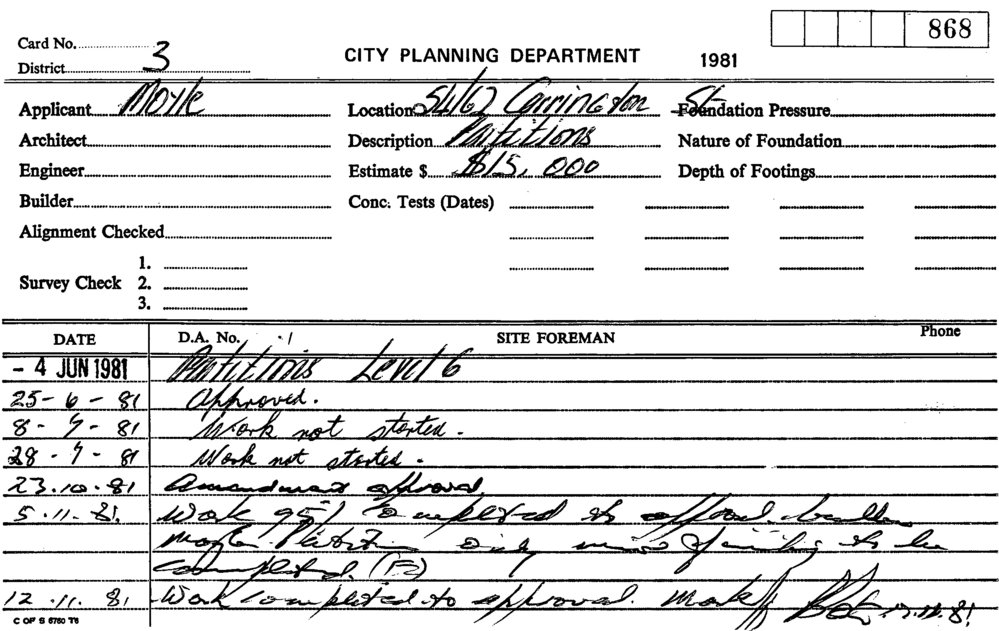 868
Card No.
District 3
CITY PLANNING DEPARTMENT 1981
Applicant Moyle Location 54/62 Carrington St Foundation Pressure
Architect Description Partitions Nature of Foundation
Engineer Estimate $ $15,000 Depth of Footings
Builder Conc. Tests (Dates)
Alignment Checked
1.
Survey Check 2.
3.
DATE D.A. No. SITE FOREMAN Phone
- 4 JUN 1981 Partitions Level 6
25-6-81 Approved.
8-7-81 Work not started.
28-7-81 Work not started.
23.10.81 Amendment approval
5.11.81. Work 95% completed to approval
only minor finishing to be
completed.
12.11.81 Work completed to approval.
C OF S 6760 T6